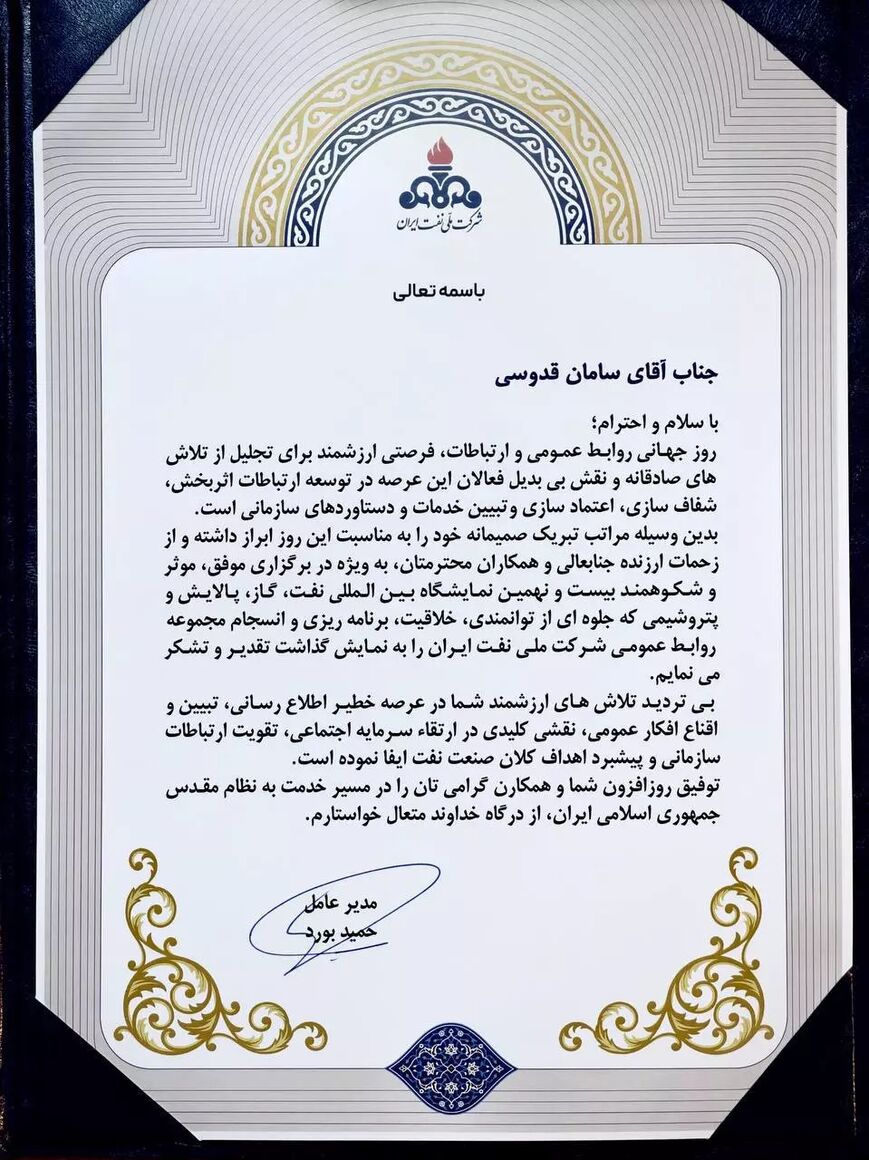 شرکت ملی نفت ایران
باسمه تعالی
جناب آقای سامان قدوسی
با سلام و احترام؛
روز جهانی روابط عمومی و ارتباطات، فرصتی ارزشمند برای تجلیل از تلاش
های صادقانه و نقش بی بدیل فعالان این عرصه در توسعه ارتباطات اثربخش،
شفاف سازی، اعتماد سازی وتبیین خدمات و دستاوردهای سازمانی است.
بدین وسیله مراتب تبریک صمیمانه خود را به مناسبت این روز ابراز داشته و از
زحمات ارزنده جنابعالی و همکاران محترمتان، به ویژه در برگزاری موفق، موثر
و شکوهمند بیست و نهمین نمایشگاه بین المللی نفت، گاز، پالایش و
پتروشیمی که جلوه ای از توانمندی، خلاقیت، برنامه ریزی و انسجام مجموعه
روابط عمومی شرکت ملی نفت ایران را به نمایش گذاشت تقدیر و تشکر
می نمایم.
بی تردید تلاش های ارزشمند شما در عرصه خطیر اطلاع رسانی، تبیین و
اقناع افکار عمومی، نقشی کلیدی در ارتقاء سرمایه اجتماعی، تقویت ارتباطات
سازمانی و پیشبرد اهداف کلان صنعت نفت ایفا نموده است.
توفیق روزافزون شما و همکارن گرامی تان را در مسیر خدمت به نظام مقدس
جمهوری اسلامی ایران، از درگاه خداوند متعال خواستارم.
مدیر عامل
حمید بورد